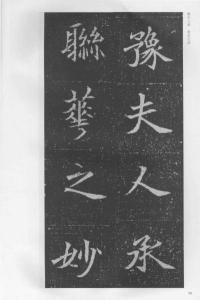 豫夫人承
聯華之妙